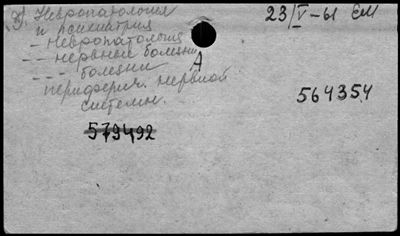 3) Невропатология 23/V-61 ЕМ
и психиатрия
- Невропатология
- - нервные болезни
- - - болезни А
периферич. нервной 564354
системы.
579492